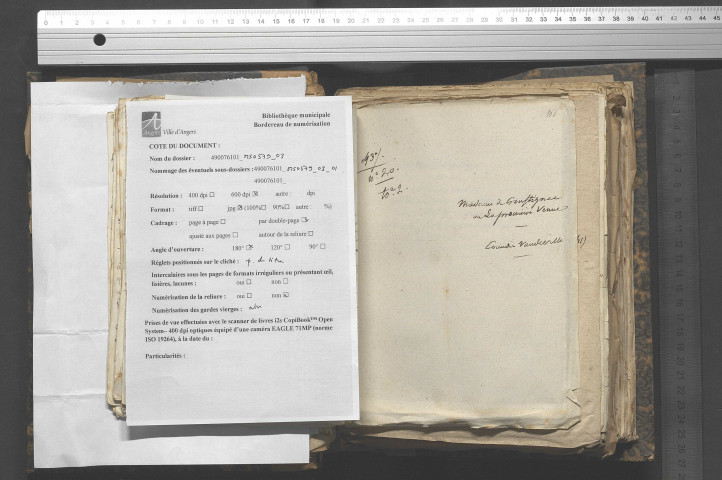 Angers
Ville d'Angers
Bibliothèque municipale
Bordereau de numérisation
COTE DU DOCUMENT :
Nom du dossier : 490076101_MS0579_03
Nommage des éventuels sous-dossiers : 490076101_MS0579_03_01
490076101_
Résolution : 400 dpi ☐ 600 dpi ☒ autre : dpi
Format : tiff ☐ jpg ☒ (100% ☐ 90% ☐ autre : %)
Cadrage : page à page ☐ par double-page ☒
ajusté aux pages ☐ autour de la reliure ☐
Angle d'ouverture : 180° ☒ 120° ☐ 90° ☐
Réglets positionnés sur le cliché : p. de titre
Intercalaires sous les pages de formats irréguliers ou présentant œil,
fosières, lacunes : oui ☐ non ☐
Numérisation de la reliure : oui ☐ non ☒
Numérisation des gardes vierges : non
Prises de vue effectuées avec le scanner de livres i2s CopiBook™ Open
System– 400 dpi optiques équipé d'une caméra EAGLE 71MP (norme
ISO 19264), à la date du :
Particularités :
Madame de
ou La première Venue
Comédie Vaudeville